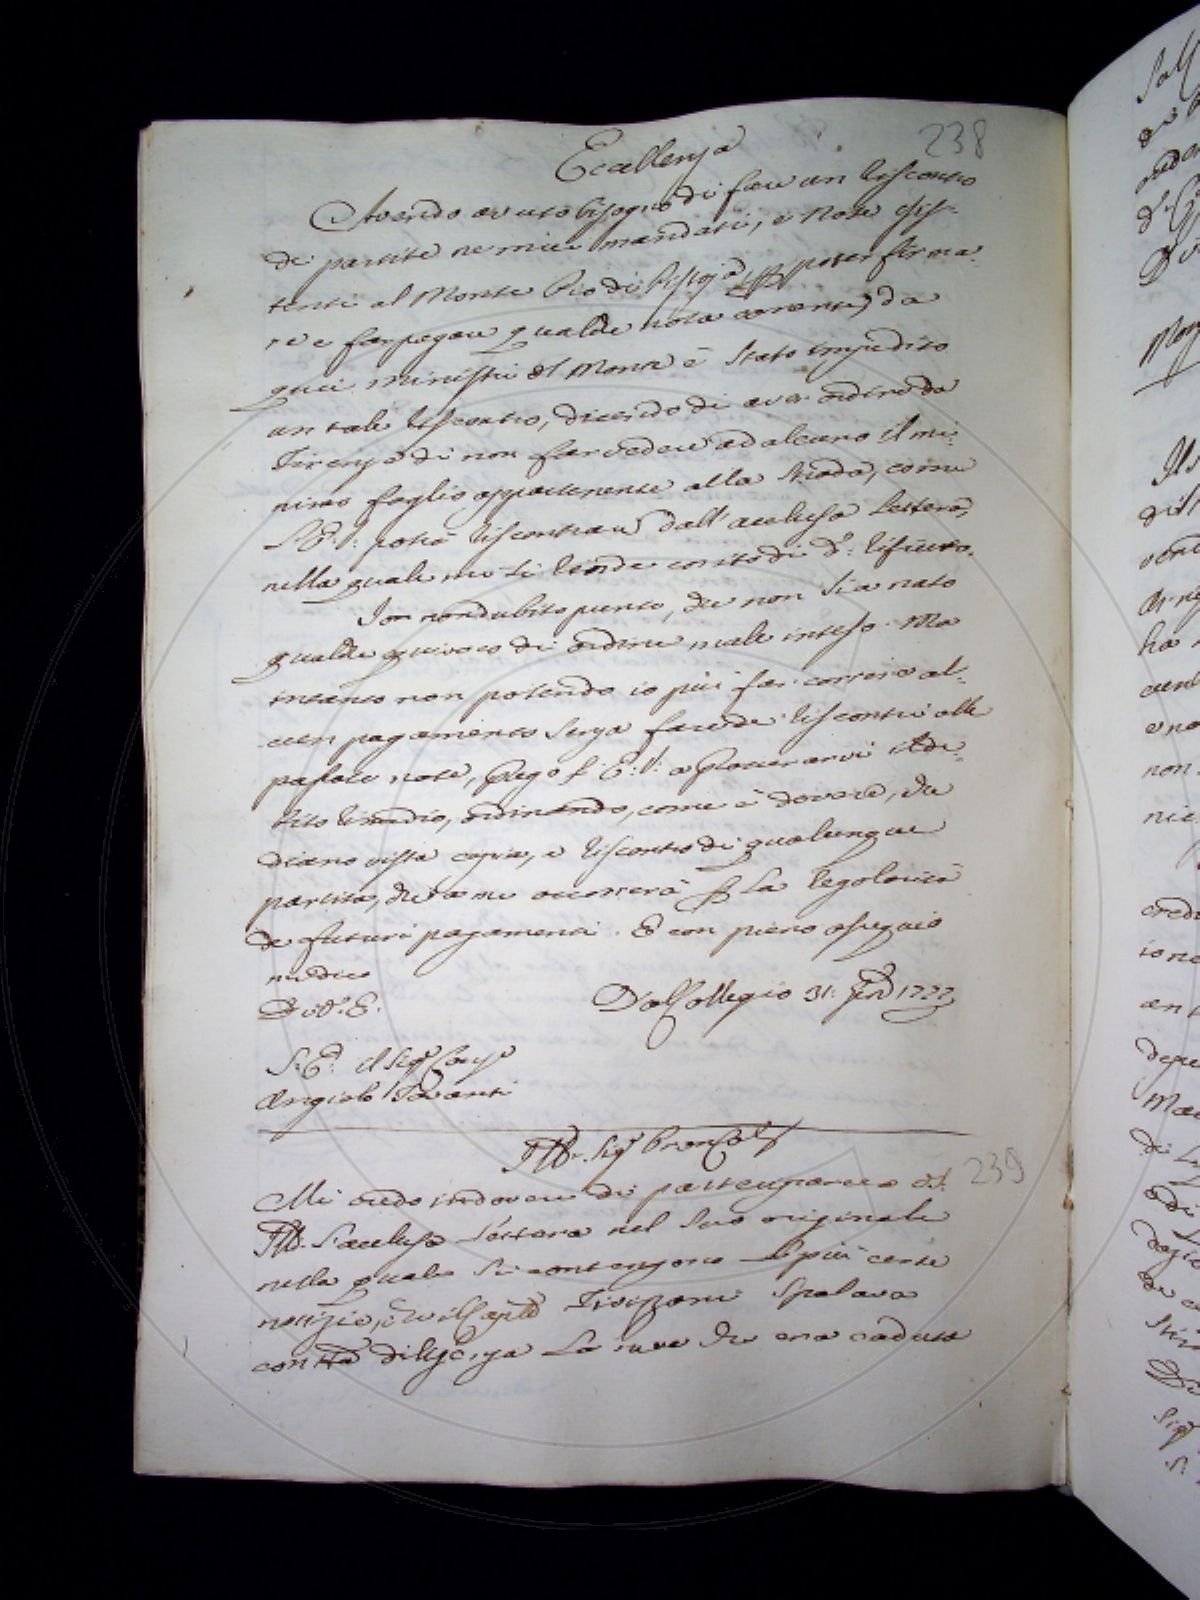 238
Eccellenza
Avendo avuto bisogno di fare un riscontro
di partite ne miei mandati, e note esis-
tenti al Monte Pio di Pistoja per poter firma-
re e far pagare qualche nota corrente, da
quei ministri del Monte è stato impedito
un tale riscontro, dicendo di aver ordine da
Firenze di non far vedere ad alcuno il mi-
nimo foglio appartenente alla strada, come
V. E. V. potrà riscontrare dall'acclusa lettera,
nella quale mi si rende conto di d.o rifiuto.
Io non dubito punto, che non sia nato
qualche equivoco di ordine male inteso. Ma
intanto non potendo io più far correre al-
cun pagamento senza fare de riscontri alle
passate note, prego l' E. V. a procurarvi
rimedio, ordinando, come è dovere, che
diano vista copia, e riscontro di qualunque
partita, che a me occorrerà per la regolarità
de futuri pagamenti. E con pieno ossequio
mi dico
Di V.a E.
Dal Collegio 31. 1777
S. E. il Sig.r Cons.e
Angiolo Tavanti
Ill.mo Sig.r
239
Mi credo in dovere di partecipare a V.S.
Ill.ma l'acclusa lettera nel suo originale
nella quale si contengono le più certe
notizie, Tivizzani spalava
con tta diligenza la neve che era caduta